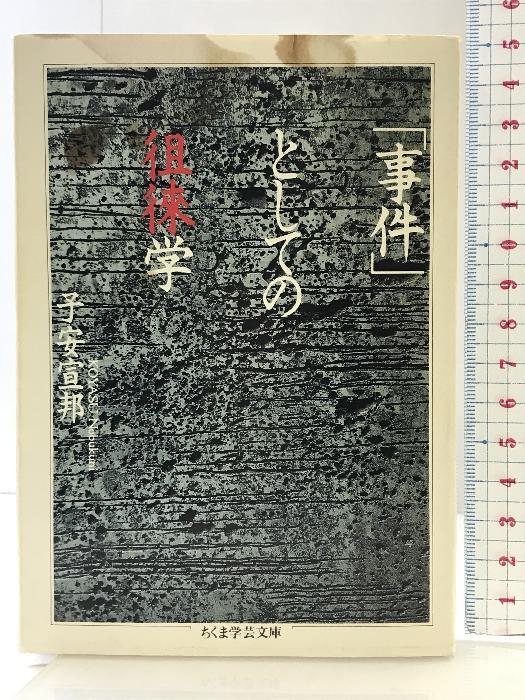 「事件」
としての
徂徠学
子安宣邦
KOYASU Nobukuni
ちくま学芸文庫
6
5
4
3
2
1
0
9
8
7
6
5
4
3
2
1